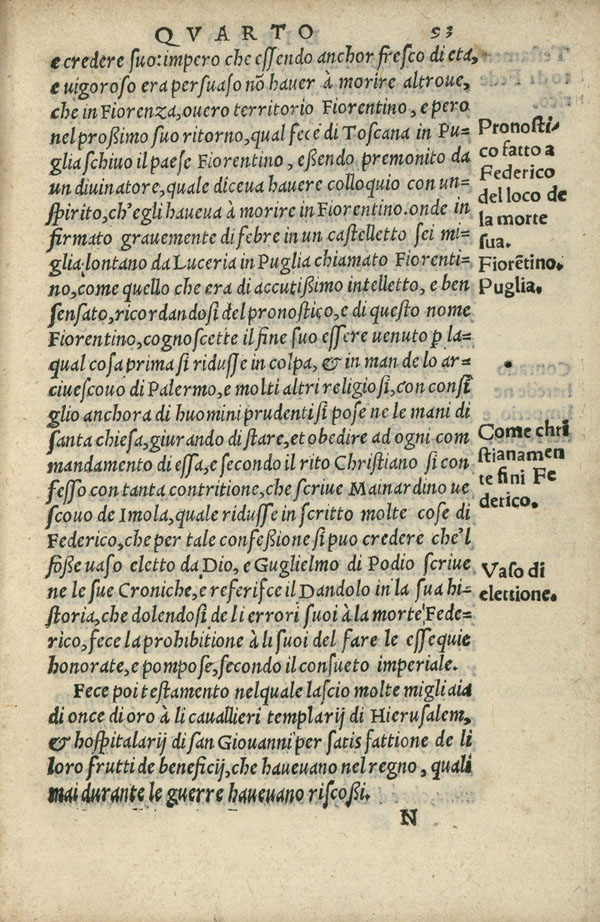 QVARTO 53
e credere suo: impero che essendo anchor fresco di eta,
e uigoroso era persuaso nõ hauer à morire altroue,
che in Fiorenza, ouero territorio Fiorentino, e pero
nel proßimo suo ritorno, qual fece di Toscana in Pu=
glia schiuo il paese Fiorentino, eßendo premonito da
un diuinatore, quale diceua hauere colloquio con un=
spirito, ch'egli haueua à morire in Fiorentino. onde in
firmato grauemente di febre in un castelletto sei mi=
glia lontano da Luceria in Puglia chiamato Fiorenti=
no, come quello che era di accutißimo intelletto, e ben
sensato, ricordandosi del pronostico, e di questo nome
Fiorentino, cognoscette il fine suo essere uenuto p la=
qual cosa prima si ridusse in colpa, & in man de lo ar=
ciuescouo di Palermo, e molti altri religiosi, con consi
glio anchora di huomini prudenti si pose ne le mani di
santa chiesa, giurando di stare, et obedire ad ogni com
mandamento di essa, e secondo il rito Christiano si con
fesso con tanta contritione, che scriue Mainardino ue
scouo de Imola, quale ridusse in scritto molte cose di
Federico, che per tale confeßione si puo credere che'l
foße uaso eletto da Dio, e Guglielmo di Podio scriue
ne le sue Croniche, e referisce il Dandolo in la sua hi=
storia, che dolendosi de li errori suoi à la morte Fede=
rico, fece la prohibitione à li suoi del fare le essequie
honorate, e pompose, secondo il consueto imperiale.
Fece poi testamento nelquale lascio molte migliaia
di once di oro à li cauallieri templarij di Hierusalem,
& hospitalarij di san Giouanni per satis fattione de li
loro frutti de beneficij, che haueuano nel regno, quali
mai durante le guerre haueuano riscoßi.
N
Pronosti=
co fatto a
Federico
del loco de
la morte
sua.
Fiorẽtino.
Puglia.
Come chri
stianamen
te fini Fe
derico.
Vaso di
elettione.